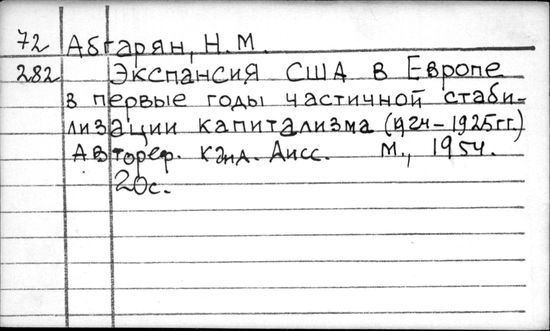 72 Абгарян, Н.М.
282 Экспансия США в Европе
в первые годы частичной стаби-
лизации капитализма (1924-1925гг.)
Автореф. канд. дисс. М., 1954.
20с.